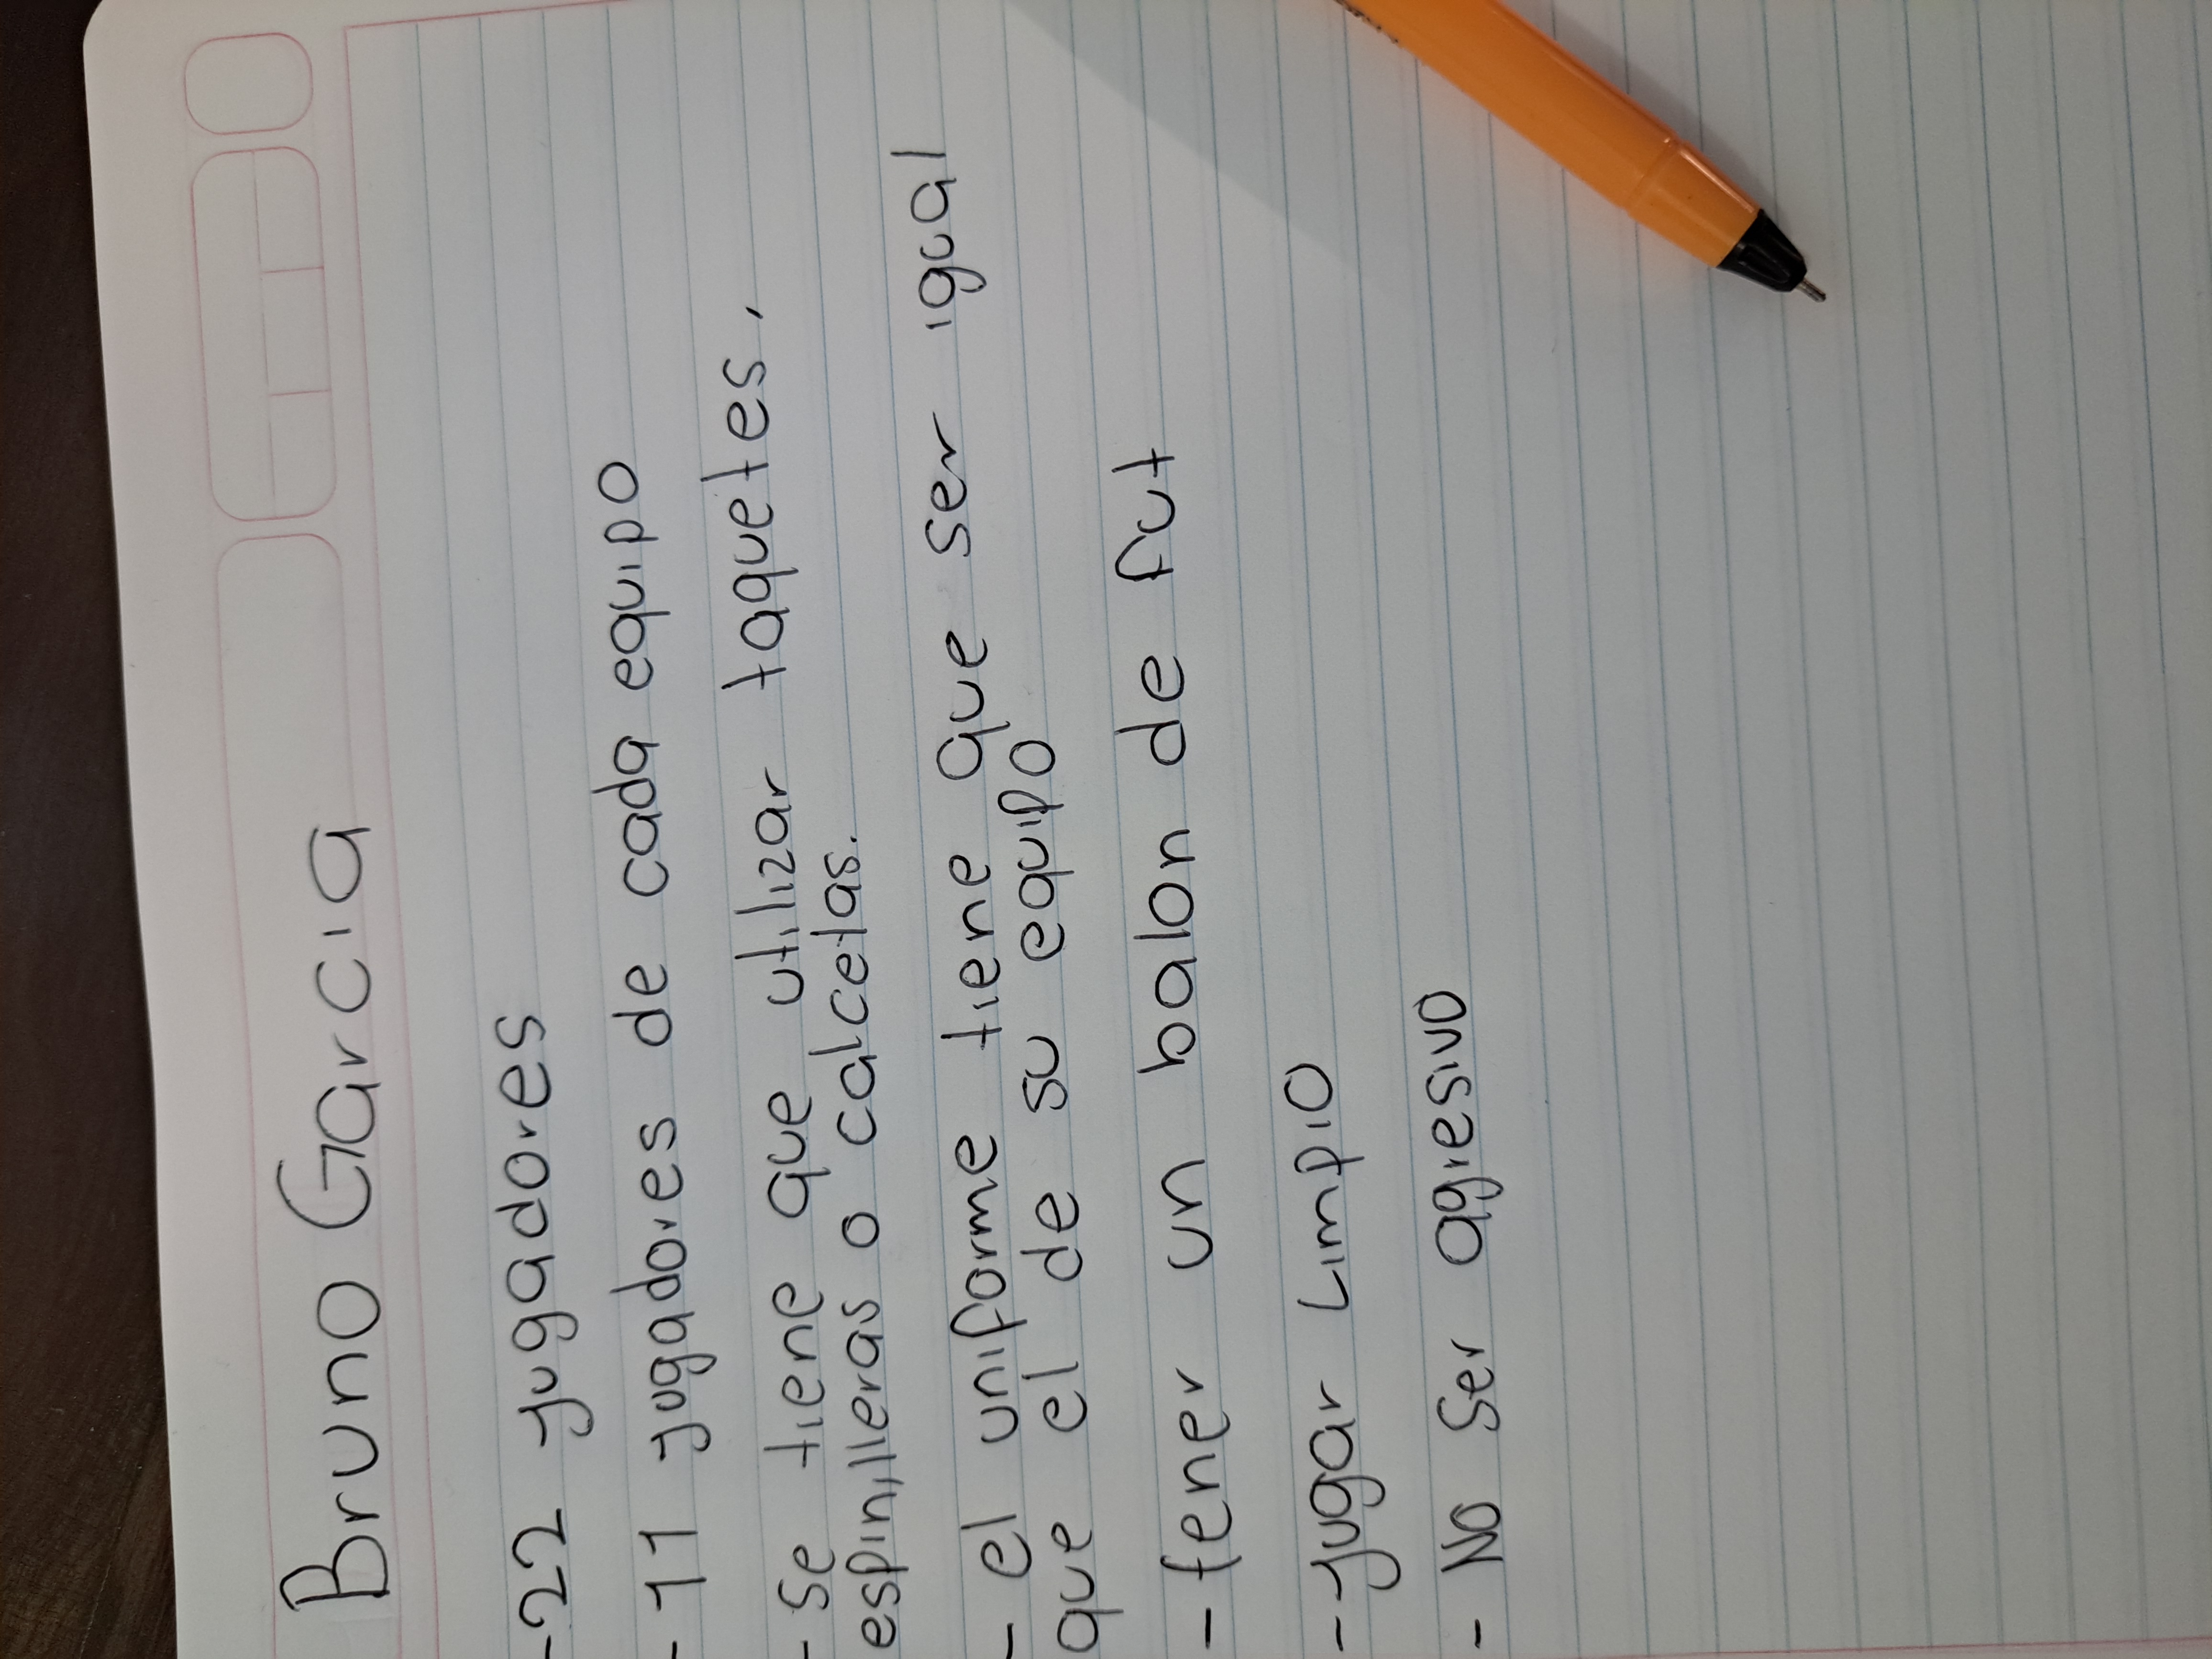 Bruno Garcia
-22 jugadores
- 11 jugadores de cada equipo
- Se tiene que utilizar taquetes,
espinilleras o calcetas.
- el uniforme tiene que ser igual
que el de su equipo
- tener un balon de fut
- jugar Limpio
- No Ser agresivo